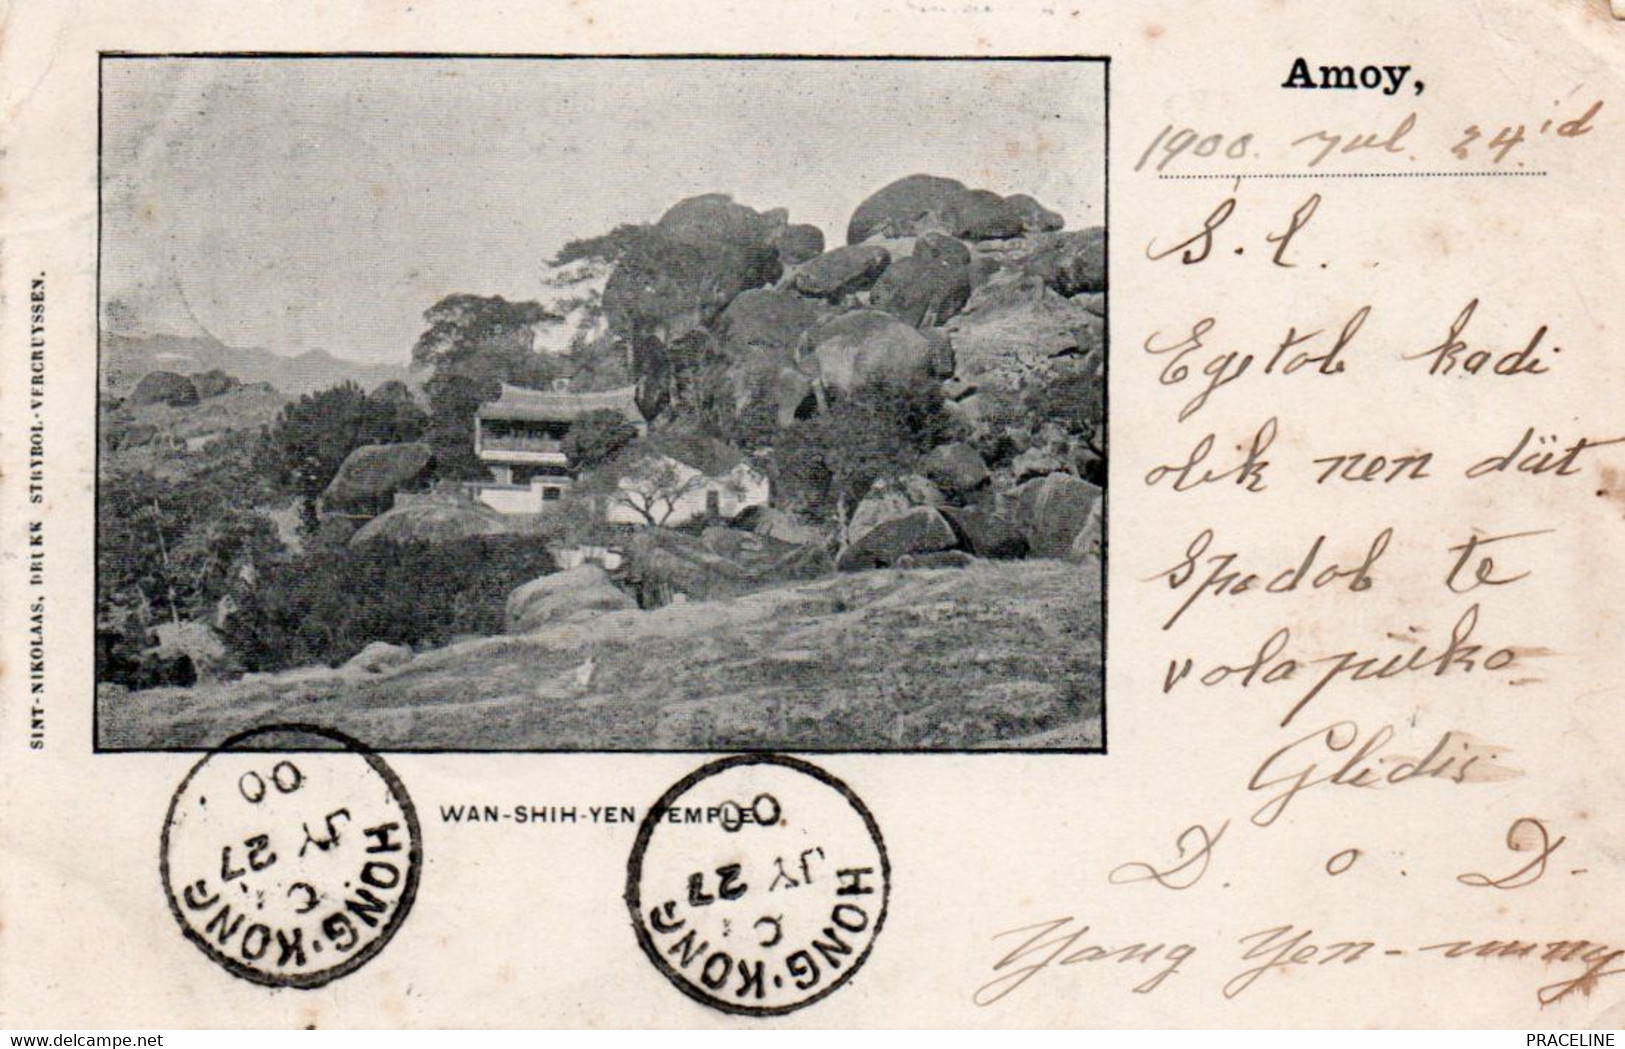 Amoy,
1900. Jul. 24.id
S. l.
Egetob kadi
olik nen düt
Spodob te
volapüko
Glidis
D. o. D.
Yang Yen-
WAN-SHIH-YEN TEMPLE.
SINT-NIKOLAAS, DRUKK STRYBOL-VERCRUYSSEN.
HONG·KONG
C
JY 27
00
HONG·KONG
C
JY 27
00
www.delcampe.net
PRACELINE